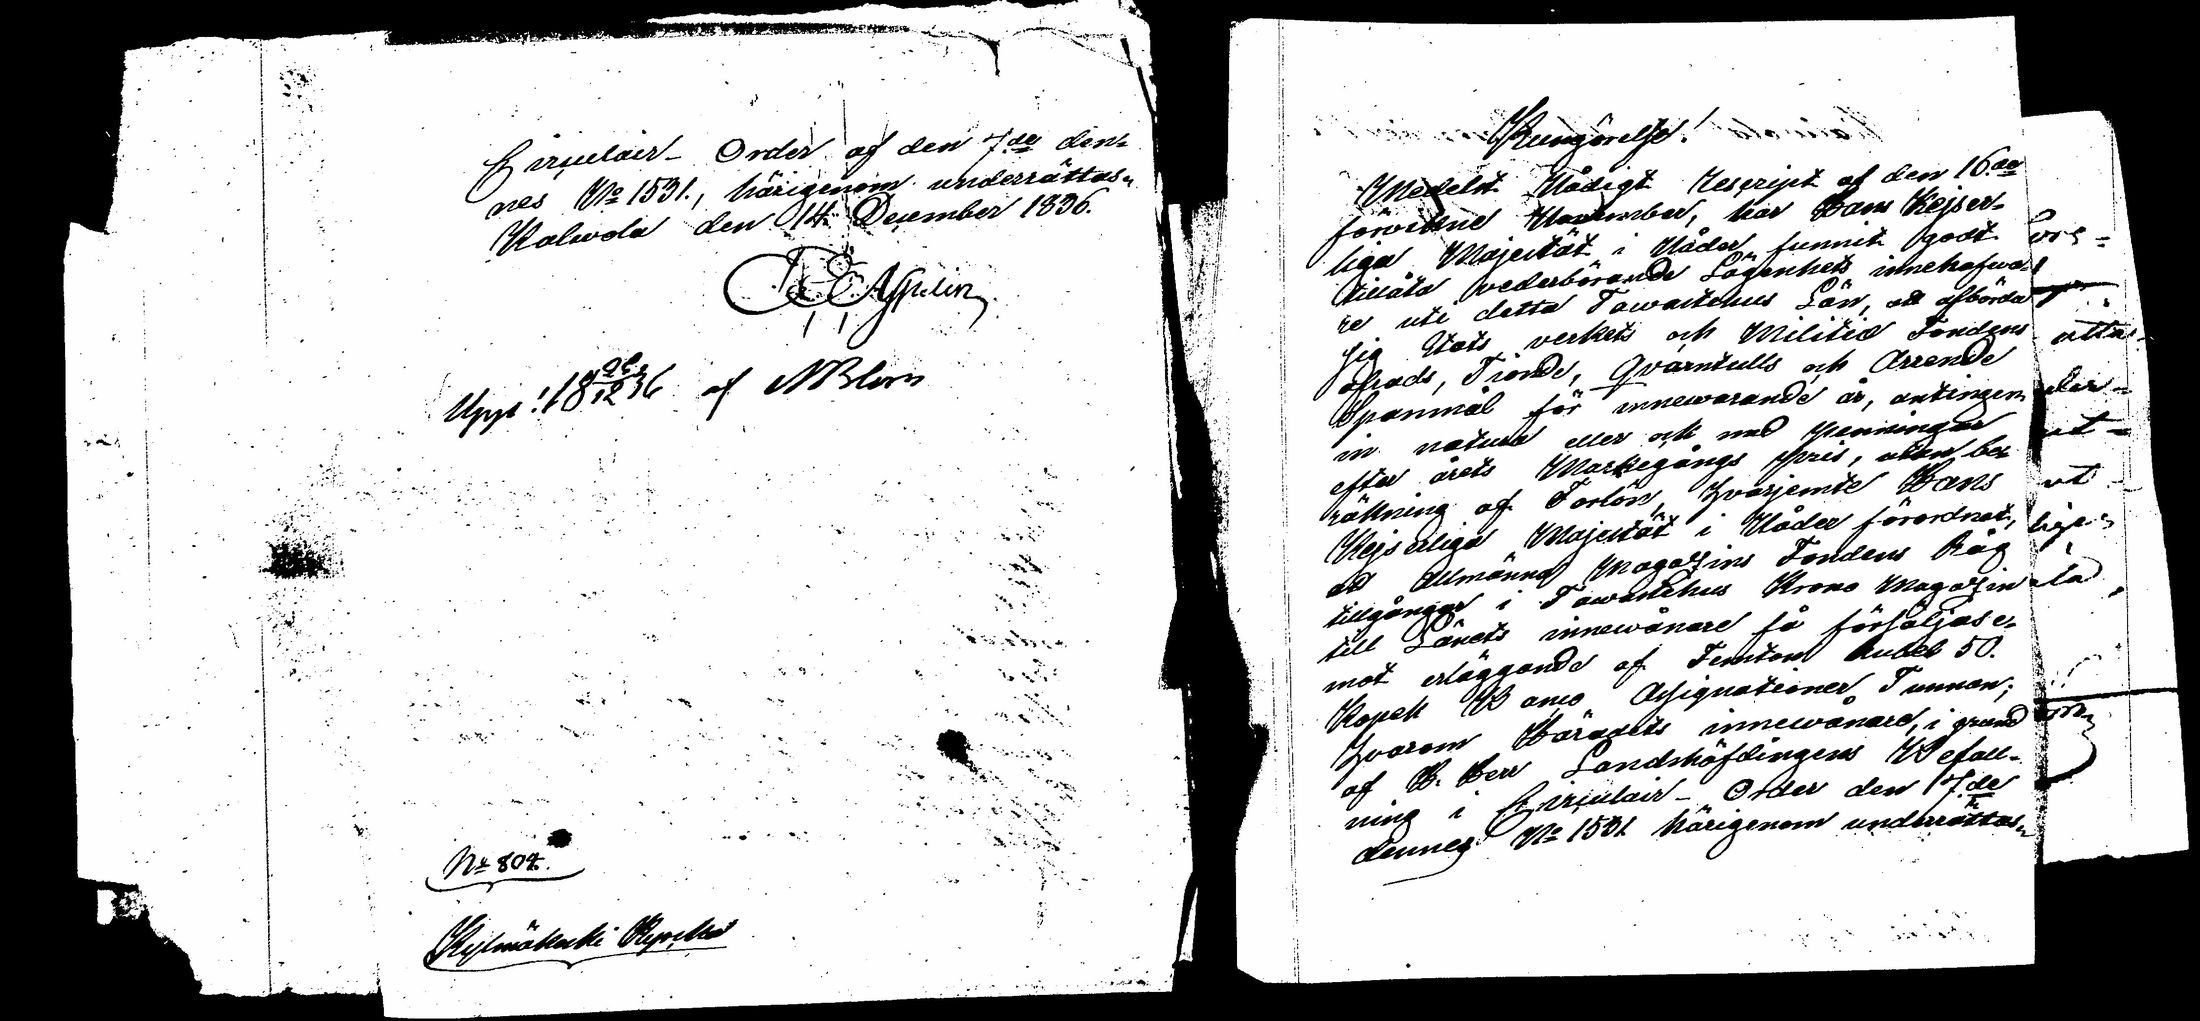 Circulair-Order af den 7de den-
nes No 1531., härigenom underrättas.
Kalwola den 14 December 1836.
Uppl: 18 26/12 36 af
No 807.
Kylmäkoski
Kungörelse!
Medelst Nådigt Rescript af den 16de
förvikne November, har Hans Kejser-
liga Majestät i Nåder funnit godt
tillåta vederbörande Lägenhets innehafwa-
re uti detta Tawastehus Län, att afbörda
sig Stats verkets och Militiæ Fondens
afrads, Tionde, Qvarntulls och Arrende
Spanmål för innewarande år, antingen
in natura eller och med penningar
efter årets Markegångs pris, utan be-
räkning af Forlön, hvarjemte Hans
Kejserliga Majestät i Nåder förordnat,
att Allmänna Magazins Fondens Råg
tillgångar i Tawastehus Krono Magazin
till Länets innewånare få försäljas
mot erläggande af Femton Rubel 50.
Kopek Banco Assignationer Tunnan;
hvarom Häradets innewånare, i grund
af H. Herr Landshöfdingens Befall-
ning i Circulair-Order den 7de
dennes No 1531 härigenom underrättas.